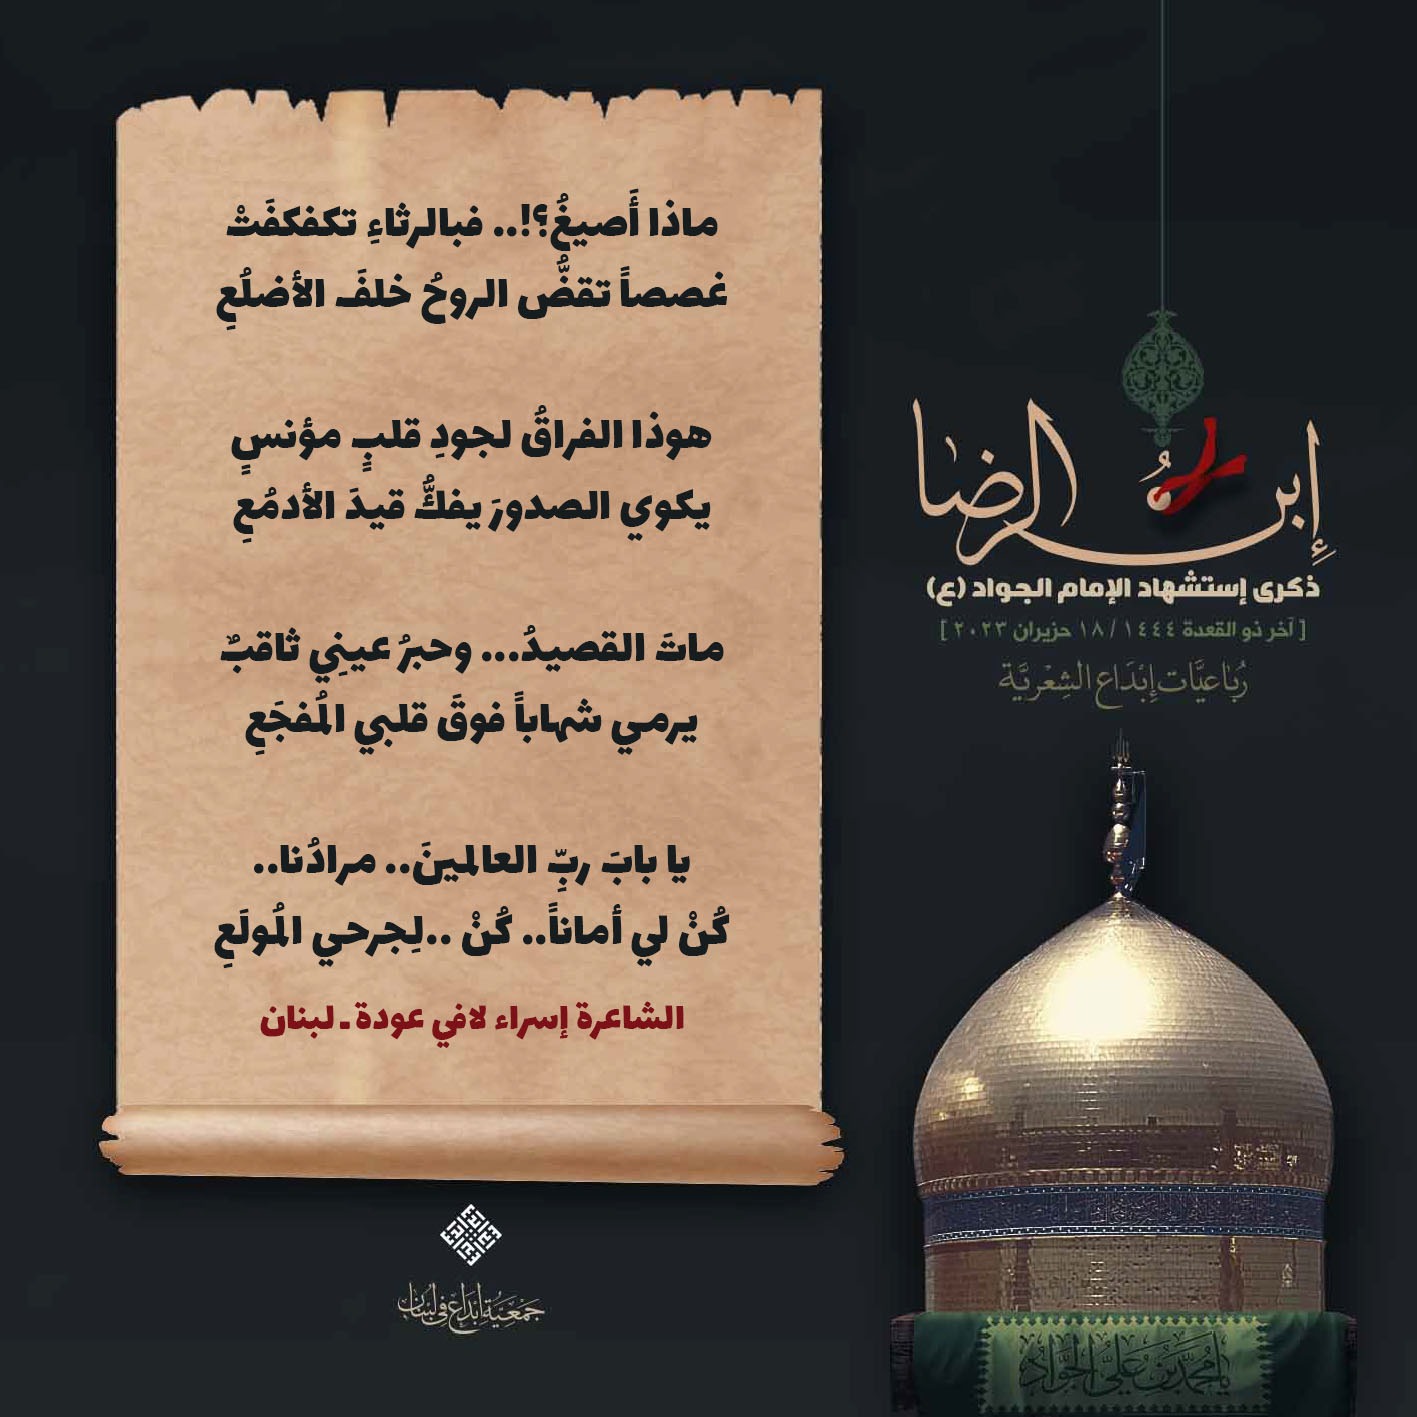 ماذا أَصيغُ؟!.. فبالرثاءِ تكفكفَتْ
غصصاً تقضُّ الروحُ خلفَ الأضلُعِ
هوذا الفراقُ لجودِ قلبٍ مؤنسٍ
يكوي الصدورَ يفكُّ قيدَ الأدمُعِ
ماتَ القصيدُ... وحبرُ عينِي ثاقبٌ
يرمي شهاباً فوقَ قلبي المُفجَعِ
يا بابَ ربِّ العالمينَ.. مرادُنا..
كُنْ لي أماناً.. كُنْ ..لِجرحي المُولَعِ
الشاعرة إسراء لافي عودة ـ لبنان
إبن الرضا
ذكرى إستشهاد الإمام الجواد (ع)
[ آخر ذو القعدة ١٤٤٤ / ١٨ حزيران ٢٠٢٣ ]
رُبَاعيَّات إبْدَاع الشِعْريَّة
يا مُحمَّد بن عَليّ الجَوَاد
جَمْعِيَّة إبْدَاع في لبْنَان